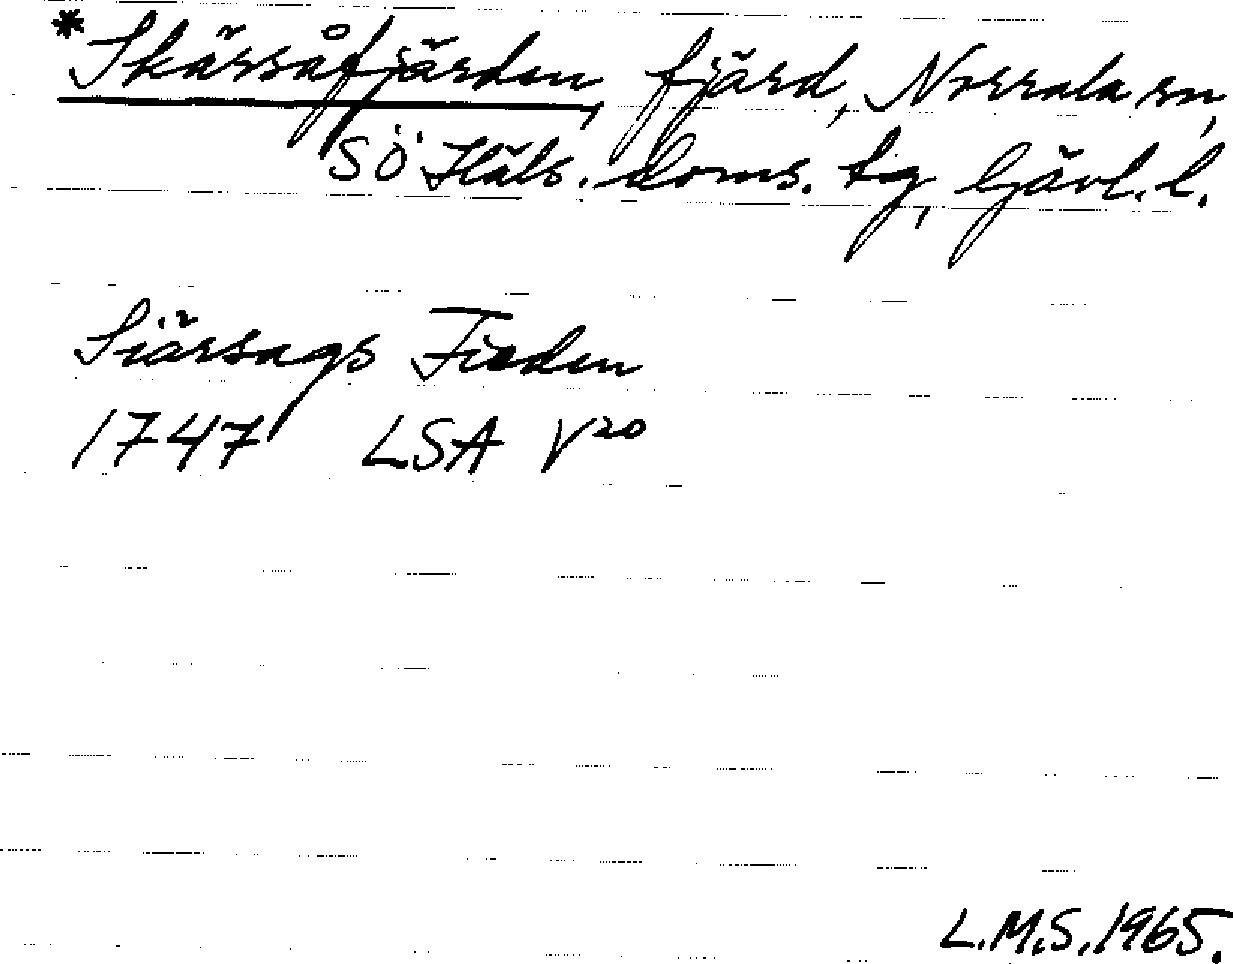 *Skärsåfjärden, fjärd, Norrala sn,
SÖ Häls. doms. tg, Gävl. l.
Siärsags Fieden
1747 LSA V²⁰
L.M.S. 1965.